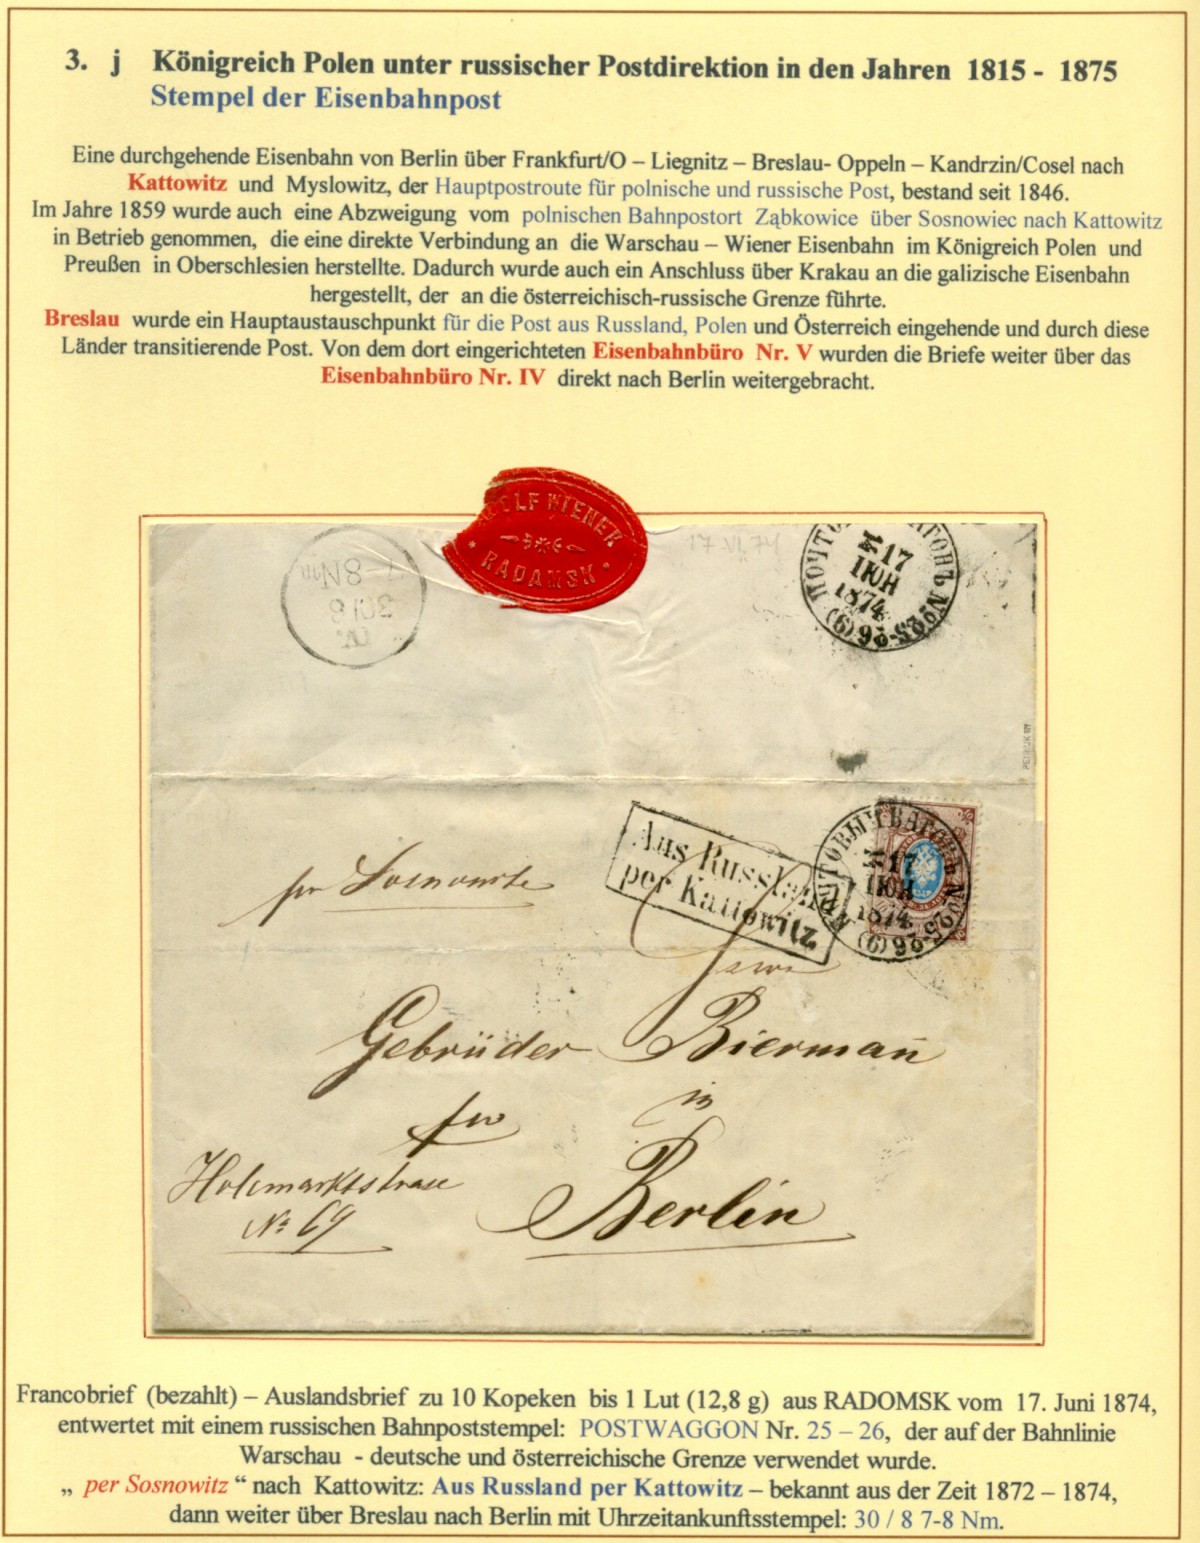 3. j Königreich Polen unter russischer Postdirektion in den Jahren 1815 - 1875
Stempel der Eisenbahnpost
Eine durchgehende Eisenbahn von Berlin über Frankfurt/O – Liegnitz – Breslau- Oppeln – Kandrzin/Cosel nach
Kattowitz und Myslowitz, der Hauptpostroute für polnische und russische Post, bestand seit 1846.
Im Jahre 1859 wurde auch eine Abzweigung vom polnischen Bahnpostort Ząbkowice über Sosnowiec nach Kattowitz
in Betrieb genommen, die eine direkte Verbindung an die Warschau – Wiener Eisenbahn im Königreich Polen und
Preußen in Oberschlesien herstellte. Dadurch wurde auch ein Anschluss über Krakau an die galizische Eisenbahn
hergestellt, der an die österreichisch-russische Grenze führte.
Breslau wurde ein Hauptaustauschpunkt für die Post aus Russland, Polen und Österreich eingehende und durch diese
Länder transitierende Post. Von dem dort eingerichteten Eisenbahnbüro Nr. V wurden die Briefe weiter über das
Eisenbahnbüro Nr. IV direkt nach Berlin weitergebracht.
WIENER
RADAMSK
17 VI. 74
7-8 Nm
30 6
17
ІЮН
1874
№ 25-26 (6)
Aus Russland
per Kattowitz
ПОЧТОВЫЙ ВАГОНЪ № 25-26 (6)
17
ІЮН
1874
per Sosnowitz
Gebrüder Biermañ
in
Berlin
Holzmarktstrasse
№ 69
Francobrief (bezahlt) – Auslandsbrief zu 10 Kopeken bis 1 Lut (12,8 g) aus RADOMSK vom 17. Juni 1874,
entwertet mit einem russischen Bahnpoststempel: POSTWAGGON Nr. 25 – 26, der auf der Bahnlinie
Warschau - deutsche und österreichische Grenze verwendet wurde.
„ per Sosnowitz “ nach Kattowitz: Aus Russland per Kattowitz – bekannt aus der Zeit 1872 – 1874,
dann weiter über Breslau nach Berlin mit Uhrzeitankunftsstempel: 30 / 8 7-8 Nm.